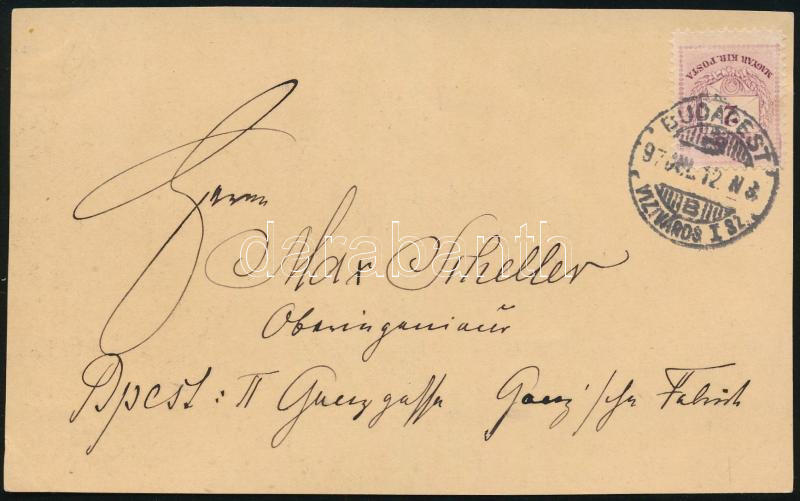 MAGYAR KIR. POSTA
BUDAPEST
97 JUL. 12 N 3.
B
VIZIVÁROS I SZ.
Herrn
Max Scheller
Oberingenieur
Bpest: II Ganzgasse Ganz'sche Fabrik
darabanth